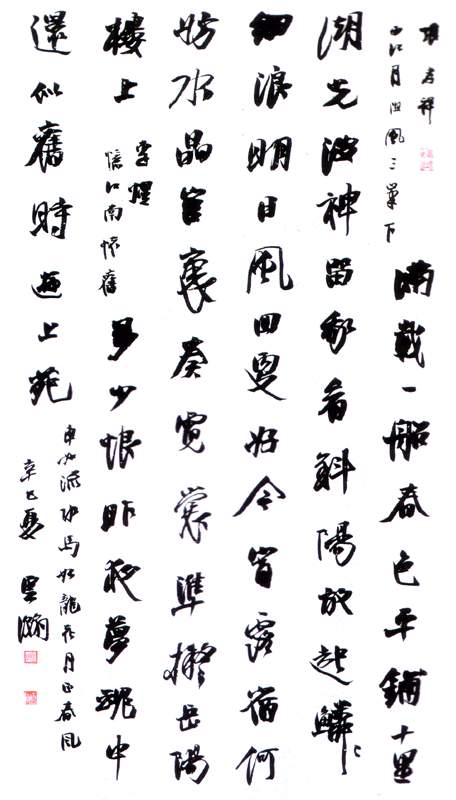 張孝祥
西江月阻風三峯下
滿載一船春色平鋪十里
湖光波神留我看斜陽放起鱗々
細浪明日風回更好今宵露宿何
妨水晶宮裏奏霓裳準擬岳陽
樓上
李煜
憶江南懷舊
多少恨昨夜夢魂中
還似舊時遊上苑
車如流水馬如龍花月正春風
辛巳夏